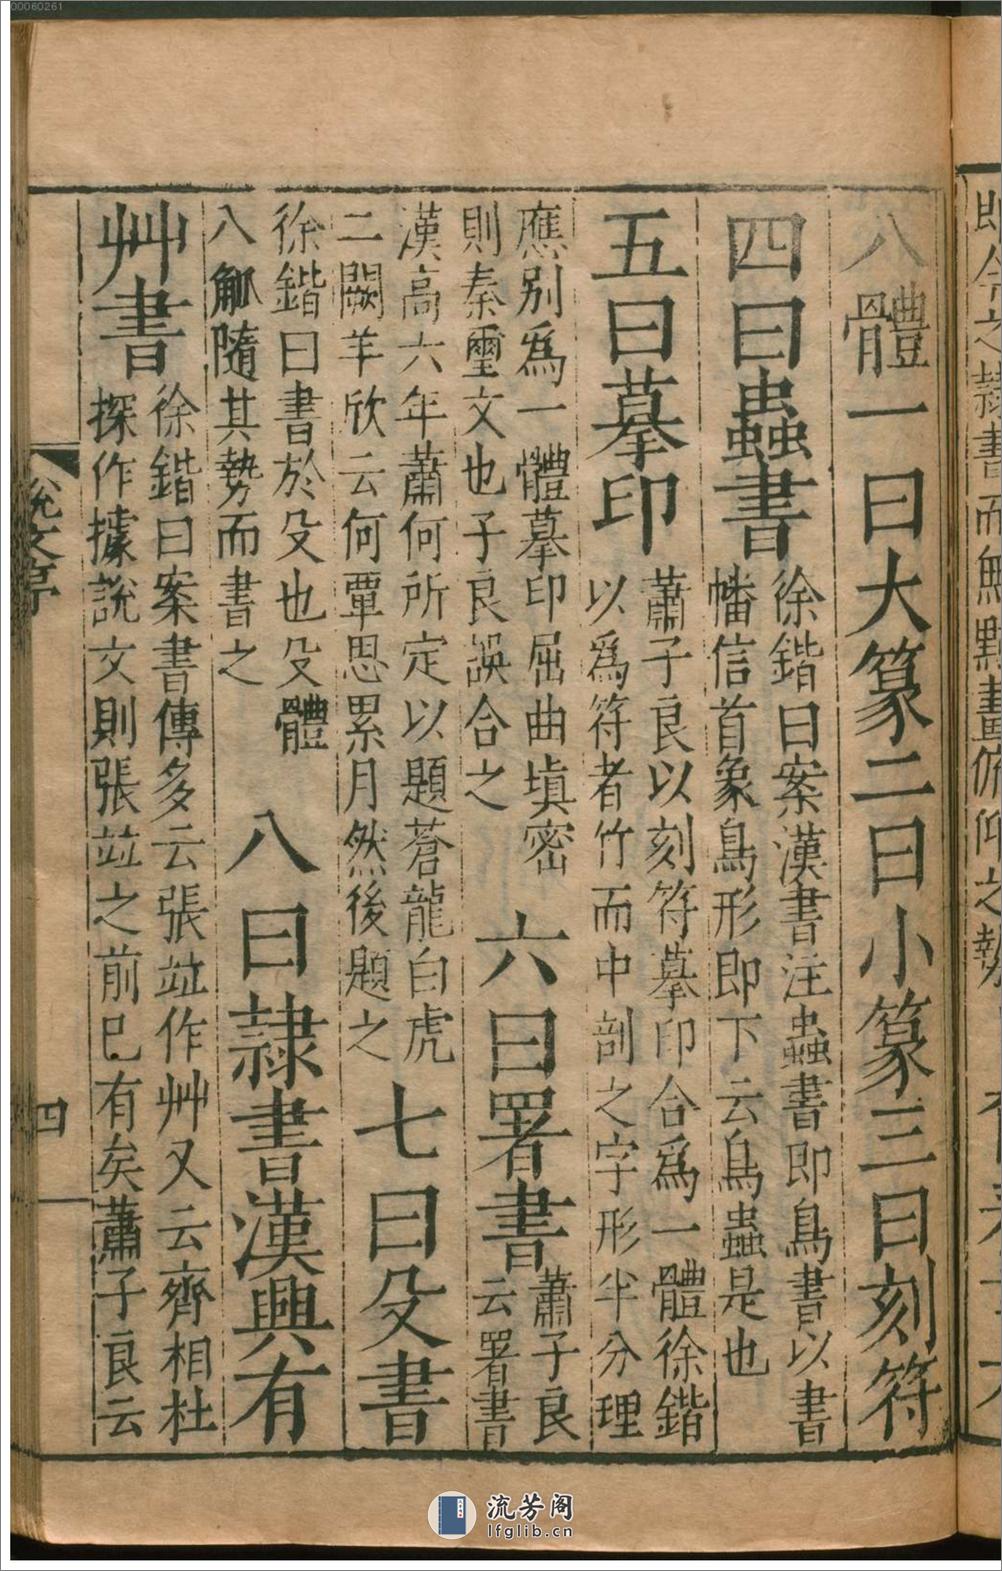 00060261
八體一曰大篆二曰小篆三曰刻符
四曰蟲書徐鍇曰案漢書注蟲書即鳥書以書
幡信首象鳥形即下云鳥蟲是也
五曰摹印蕭子良以刻符摹印合爲一體徐鍇
以爲符者竹而中剖之字形半分理
應別爲一體摹印屈曲塡密
則秦璽文也子良誤合之
六曰署書蕭子良
云署書
漢高六年蕭何所定以題蒼龍白虎
二闕羊欣云何覃思累月然後題之
七曰殳書
徐鍇曰書於殳也殳體
八觚隨其勢而書之
八曰隸書漢興有
艸書徐鍇曰案書傳多云張竝作艸又云齊相杜
探作據說文則張竝之前已有矣蕭子良云
說文序
四
即今之隸書而無點畫俯仰之勢
流芳阁
lfglib.cn